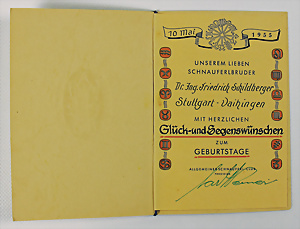 10 Mai 1955
UNSEREM LIEBEN
SCHNAUFERLBRUDER
Dr. Ing. Friedrich Schildberger
Stuttgart-Vaihingen
MIT HERZLICHEN
Glück-und Segenswünschen
ZUM
GEBURTSTAGE
ALLGEMEINER SCHNAUFERL-CLUB